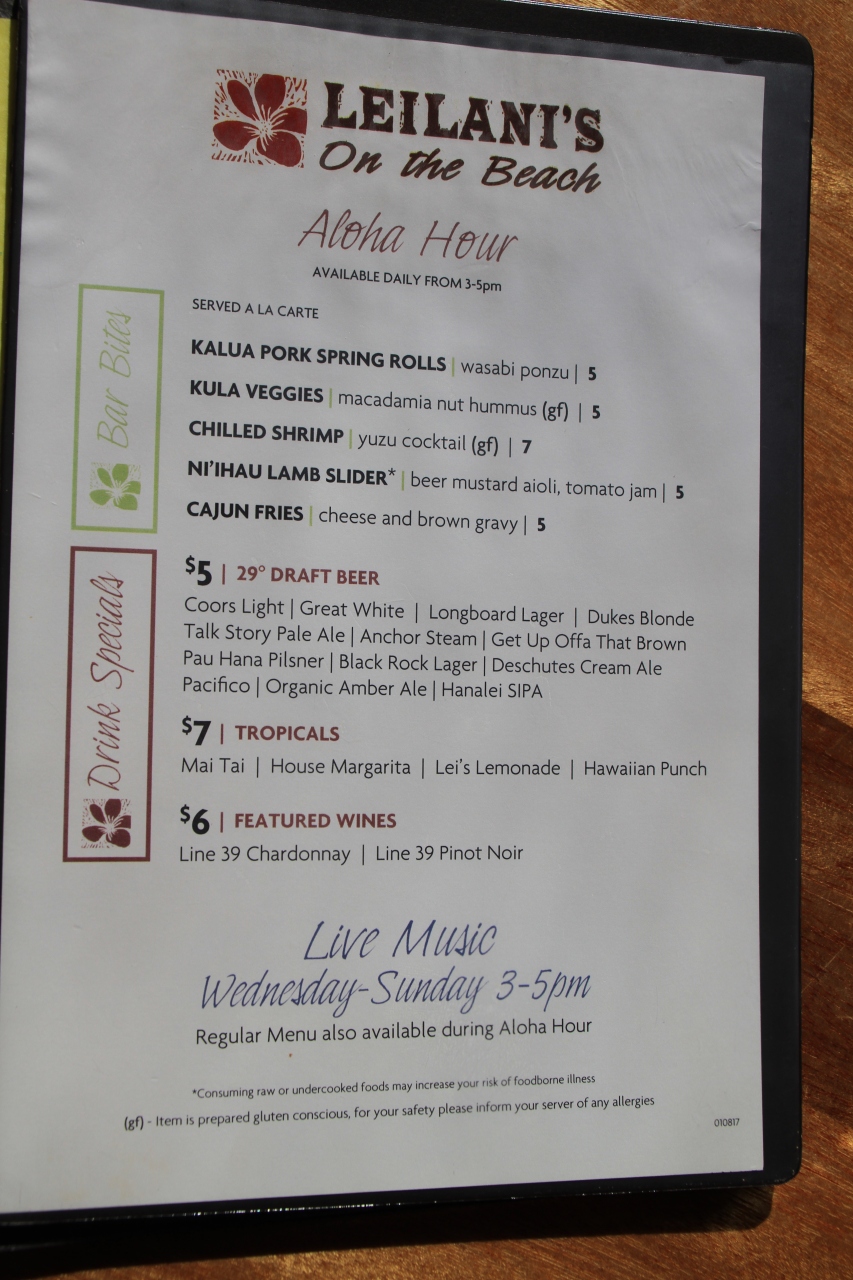 LEILANI'S
On the Beach
Aloha Hour
AVAILABLE DAILY FROM 3-5pm
Bar Bites
SERVED A LA CARTE
KALUA PORK SPRING ROLLS | wasabi ponzu | 5
KULA VEGGIES | macadamia nut hummus (gf) | 5
CHILLED SHRIMP | yuzu cocktail (gf) | 7
NI'IHAU LAMB SLIDER* | beer mustard aioli, tomato jam | 5
CAJUN FRIES | cheese and brown gravy | 5
Drink Specials
$5 | 29° DRAFT BEER
Coors Light | Great White | Longboard Lager | Dukes Blonde
Talk Story Pale Ale | Anchor Steam | Get Up Offa That Brown
Pau Hana Pilsner | Black Rock Lager | Deschutes Cream Ale
Pacifico | Organic Amber Ale | Hanalei SIPA
$7 | TROPICALS
Mai Tai | House Margarita | Lei's Lemonade | Hawaiian Punch
$6 | FEATURED WINES
Line 39 Chardonnay | Line 39 Pinot Noir
Live Music
Wednesday-Sunday 3-5pm
Regular Menu also available during Aloha Hour
*Consuming raw or undercooked foods may increase your risk of foodborne illness
(gf) - Item is prepared gluten conscious, for your safety please inform your server of any allergies
010817